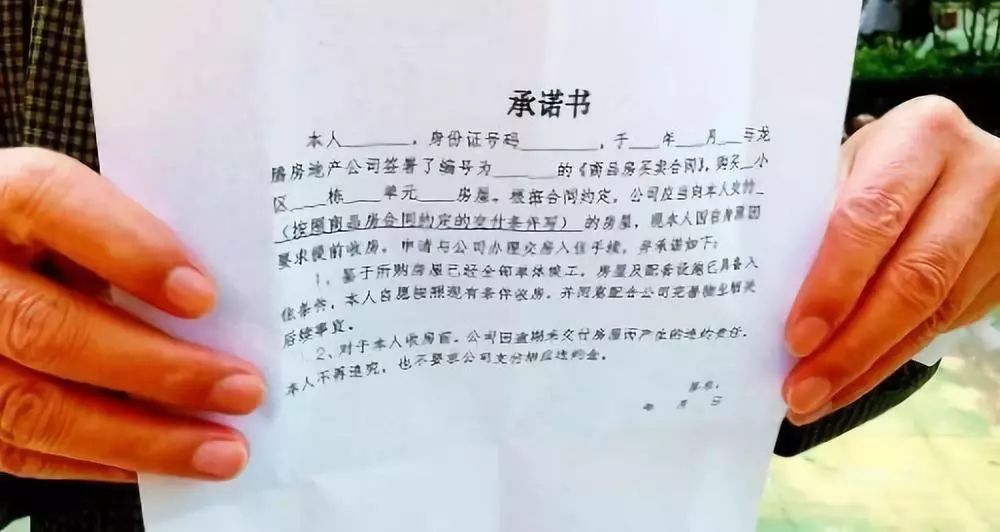 承诺书
本人______，身份证号码________，于___年___月__与龙
腾房地产公司签署了编号为______的《商品房买卖合同》，购买__小
区____栋____单元____房屋。根据合同约定，公司应当向本人交付_
（按照商品房合同约定的交付条件写）的房屋，现本人因自身原因
要求提前收房，申请与公司办理交房入住手续，并承诺如下：
1、基于所购房屋已经全部单体竣工，房屋及配套设施已具备入
住条件，本人自愿按照现有条件收房，并同意配合公司完善物业相关
后续事宜。
2、对于本人收房前，公司因逾期未交付房屋而产生的违约责任，
本人不再追究，也不要求公司支付相应违约金。
年 月 日